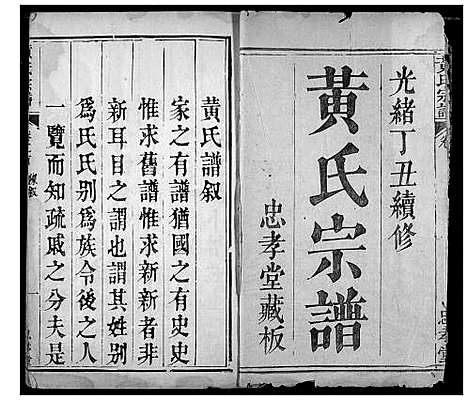 光緒丁丑續修
黃氏宗譜
忠孝堂藏板
黃氏譜叙
家之有譜猶國之有史史
惟求舊譜惟求新新者非
新耳目之謂也謂其姓別
為氏氏別為族令後之人
一覽而知疏戚之分夫是